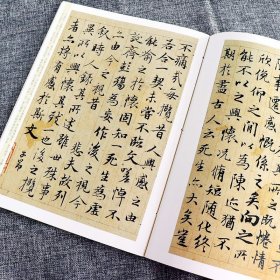 欣俛仰之間以為陳迹猶不
能不以之興懷況脩短隨化終
期於盡古人云死生亦大矣豈
不痛哉每攬昔人興感之由
若合一契未嘗不臨文嗟悼不
能喻之於懷固知一死生為虛
誕齊彭殤為妄作後之視今
亦由今之視昔悲夫故列
敘時人錄其所述雖世殊事
異所以興懷其致一也後之攬
者亦將有感於斯文
子昂